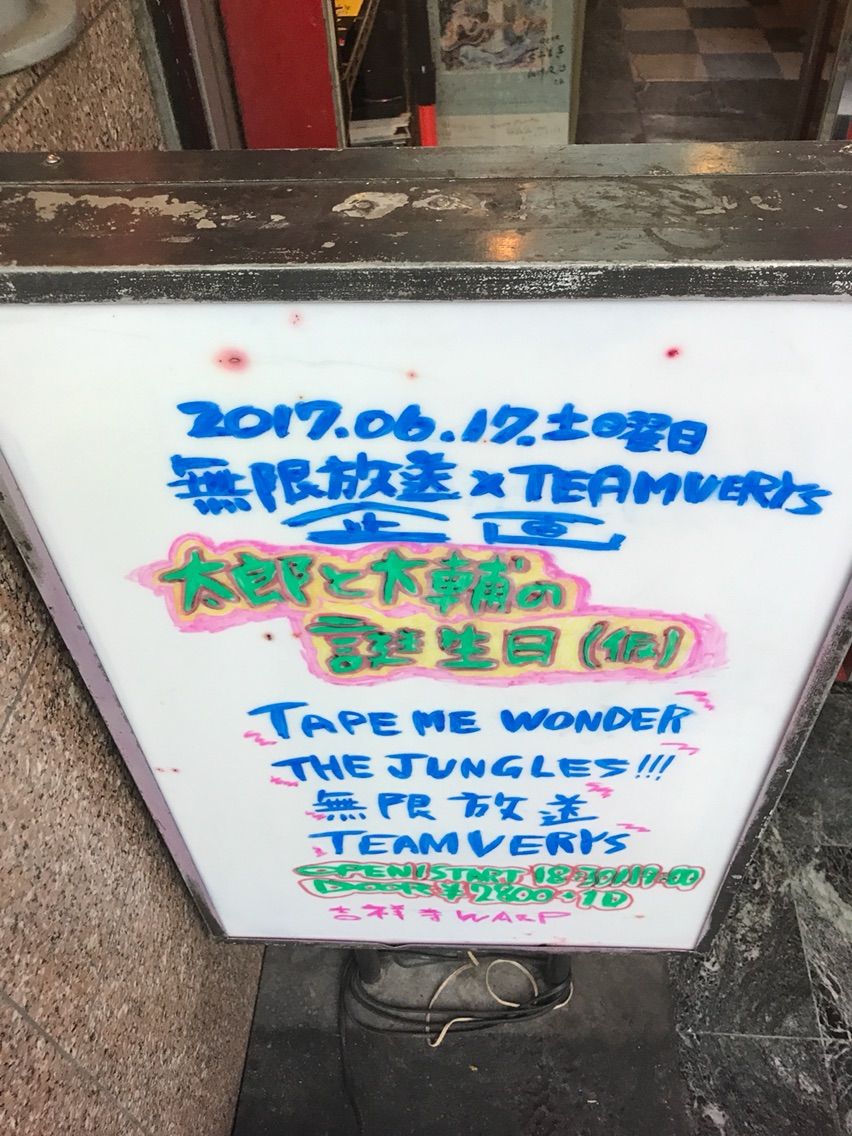 2017.06.17.土曜日
無限放送×TEAMVERYS
企画
太郎と大輔の
誕生日(仮)
TAPE ME WONDER
THE JUNGLES!!!
無限放送
TEAMVERYS
OPEN/START 18:30/19:00
DOOR ¥2800+1D
吉祥寺WARP